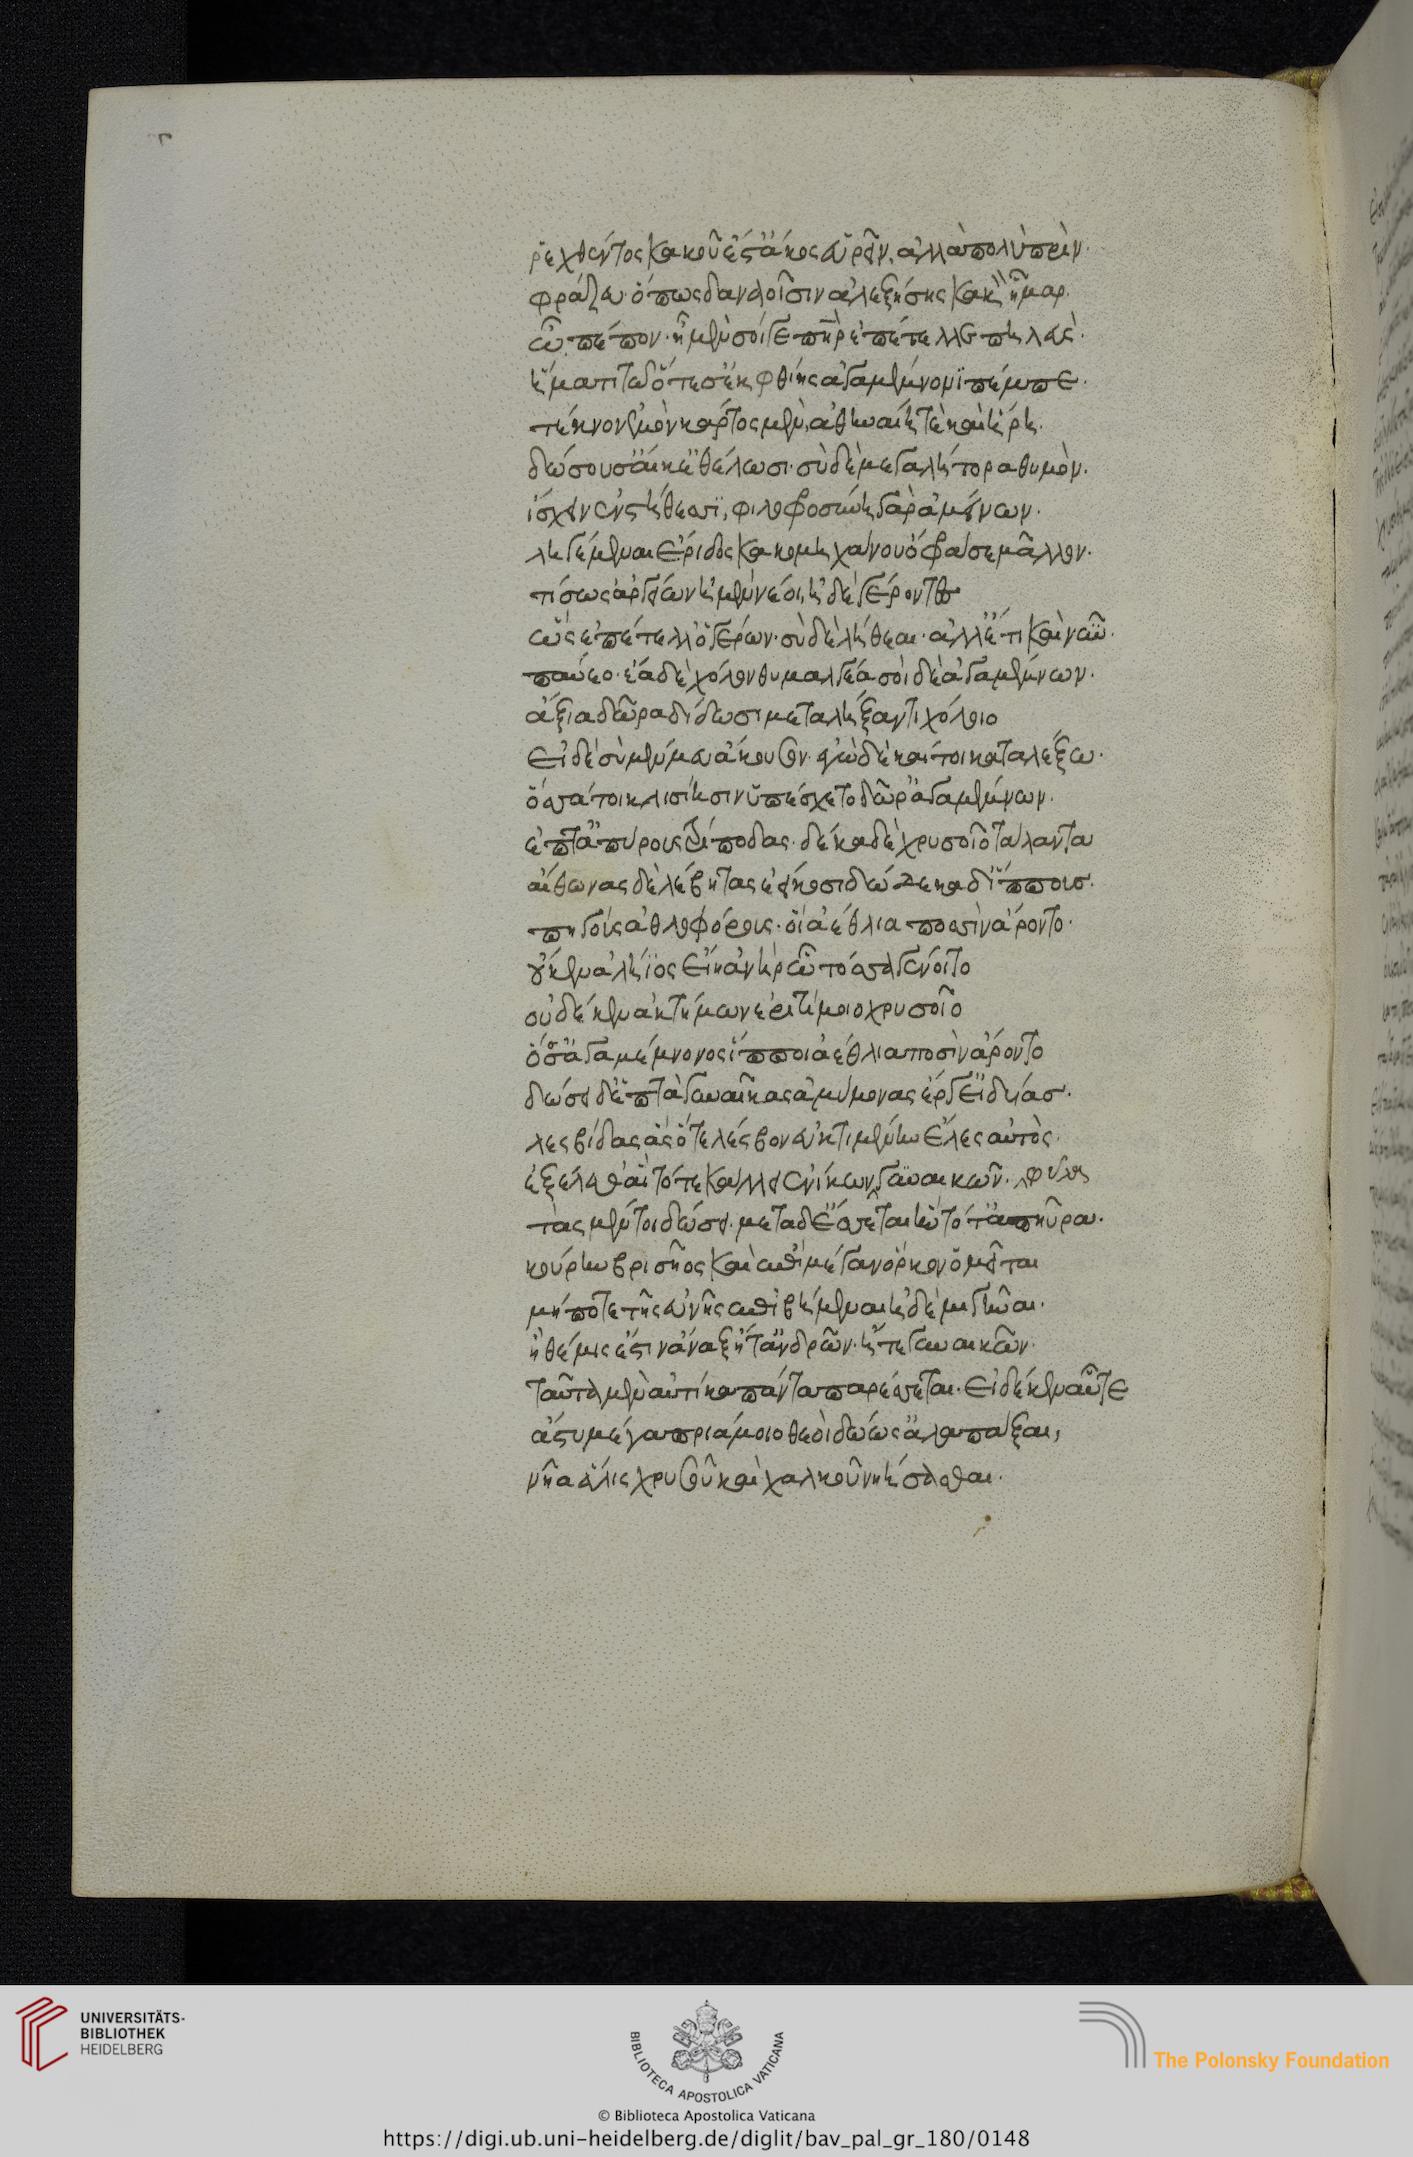 ῥεχθέντος κακοῦ ἐστ' ἄκος εὑρεῖν, ἀλλὰ πολὺ πρὶν.
φράζευ ὅπως δαναοῖσιν ἀλεξήσης κακὸν ἦμαρ.
ὦ πέπον. ἦ μὲν σοίγε πατὴρ ἐπετέλλετο πηλεύς.
ἤματι τῶ ὅτε σ' ἐκ φθίης ἀγαμέμνονι πέμπε.
τέκνον ἐμὸν κάρτος μὲν, ἀθηναίη τὲ καὶ ἥρη.
δώσουσ' αἴ κ' ἐθέλωσι. σὺ δὲ μεγαλήτορα θυμὸν.
ἴσχειν ἐν στήθεσσι, φιλοφροσύνη γὰρ ἀμείνων.
ληγέμεναι ἔριδος κακομηχάνου ὄφρα σε μᾶλλον.
τίσωσ' ἀργείων ἠμὲν νέοι, ἠδὲ γέροντες
ὣς ἐπέτελλ' ὁ γέρων. σὺ δὲ λήθεαι. ἀλλ' ἔτι καὶ νῦν.
παύεο. ἔα δὲ χόλον θυμαλγέα σοὶ δὲ ἀγαμέμνων.
ἄξια δῶρα δίδωσι μεταλήξαντι χόλοιο
εἰ δὲ σὺ μέν μευ ἄκουσον. ἐγὼ δὲ κέ τοι καταλέξω.
ὅσσά τοι κλισίησιν ὑπέσχετο δῶρ' ἀγαμέμνων.
ἕπτ' ἀπύρους τρίποδας. δέκα δὲ χρυσοῖο τάλαντα
αἴθωνας δὲ λέβητας ἐείκοσι δώδεκα δ' ἵππους.
πηγοὺς ἀθλοφόρους. οἳ ἀέθλια ποσσὶν ἄροντο.
οὔ κεν ἀλήϊος εἴη ἀνὴρ ὧ τόσσα γένοιτο
οὐδέ κεν ἀκτήμων ἐριτίμοιο χρυσοῖο
ὅσσ' ἀγαμέμνονος ἵπποι ἀέθλια ποσὶν ἄροντο
δώσει δ' ἑπτὰ γυναῖκας ἀμύμονας ἔργ' εἰδυίας.
λεσβίδας ἃς ὅτε λέσβον ἐϋκτιμένην ἕλες αὐτὸς.
ἐξέλεθ' αἳ τότε κάλλει ἐνίκων γυναικῶν. φῦλα
τὰς μέν τοι δώσει. μετὰ δ' ἔσσεται ἣν τότ' ἀπηύρα.
κούρην βρισῆος καὶ ἐπὶ μέγαν ὅρκον ὀμεῖται
μήποτε τῆς εὐνῆς ἐπιβήμεναι ἠδὲ μιγῆναι.
ἣ θέμις ἐστὶν ἄναξ ἤτ' ἀνδρῶν. ἤτε γυναικῶν.
ταῦτα μὲν αὐτίκα πάντα παρέσσεται. εἰ δέ κεν αὖτε
ἄστυ μέγα πριάμοιο θεοὶ δώωσ' ἀλαπάξαι,
νῆα ἅλις χρυσοῦ καὶ χαλκοῦ νηήσασθαι.
UNIVERSITÄTS-
BIBLIOTHEK
HEIDELBERG
BIBLIOTECA APOSTOLICA VATICANA
The Polonsky Foundation
© Biblioteca Apostolica Vaticana
https://digi.ub.uni-heidelberg.de/diglit/bav_pal_gr_180/0148